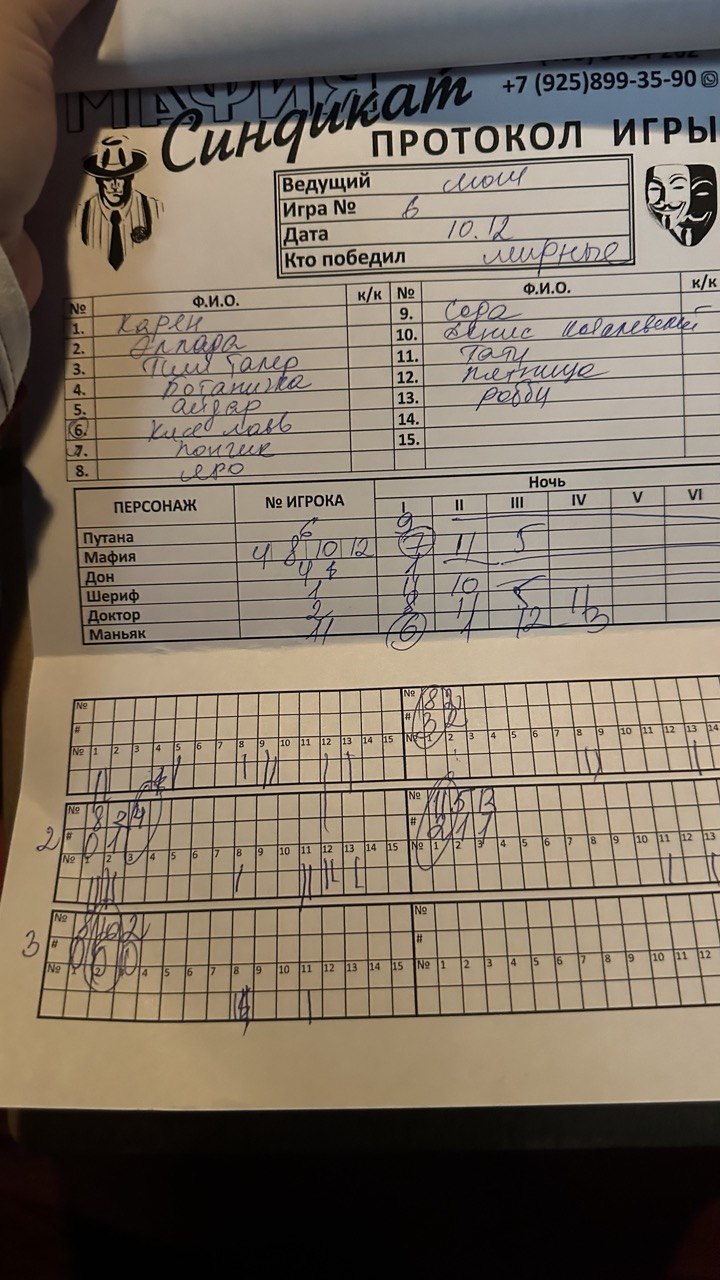 МАФИЯ
+7 (925)899-35-90
Синдикат
ПРОТОКОЛ ИГРЫ
Ведущий мош
Игра № 6
Дата 10.12
Кто победил мирные
№ Ф.И.О. к/к № Ф.И.О. к/к
1. Карен 9. Сора
2. Эллада 10. Денис Ковалевский
3. Тим Талер 11. Тату
4. Ботаничка 12. пятница
5. айдар 13. робби
6. Кисс лавв 14.
7. пончик 15.
8. яро
ПЕРСОНАЖ № ИГРОКА Ночь
I II III IV V VI
Путана 6 9
Мафия 4 8 10 12 7 11 5
Дон 4 1
Шериф 1 11 10 5
Доктор 2 8 11 5 11
Маньяк 11 6 1 12 3
№ № 8 2
# # 3 2
№ 1 2 3 4 5 6 7 8 9 10 11 12 13 14 15 № 1 2 3 4 5 6 7 8 9 10 11 12 13 14
2
№ 8 2 4 № 11 5 13
# 0 1 # 2 1 1
№ 1 2 3 4 5 6 7 8 9 10 11 12 13 14 15 № 1 2 3 4 5 6 7 8 9 10 11 12 13
3
№ 8 10 2 №
# #
№ 1 2 3 4 5 6 7 8 9 10 11 12 13 14 15 № 1 2 3 4 5 6 7 8 9 10 11 12